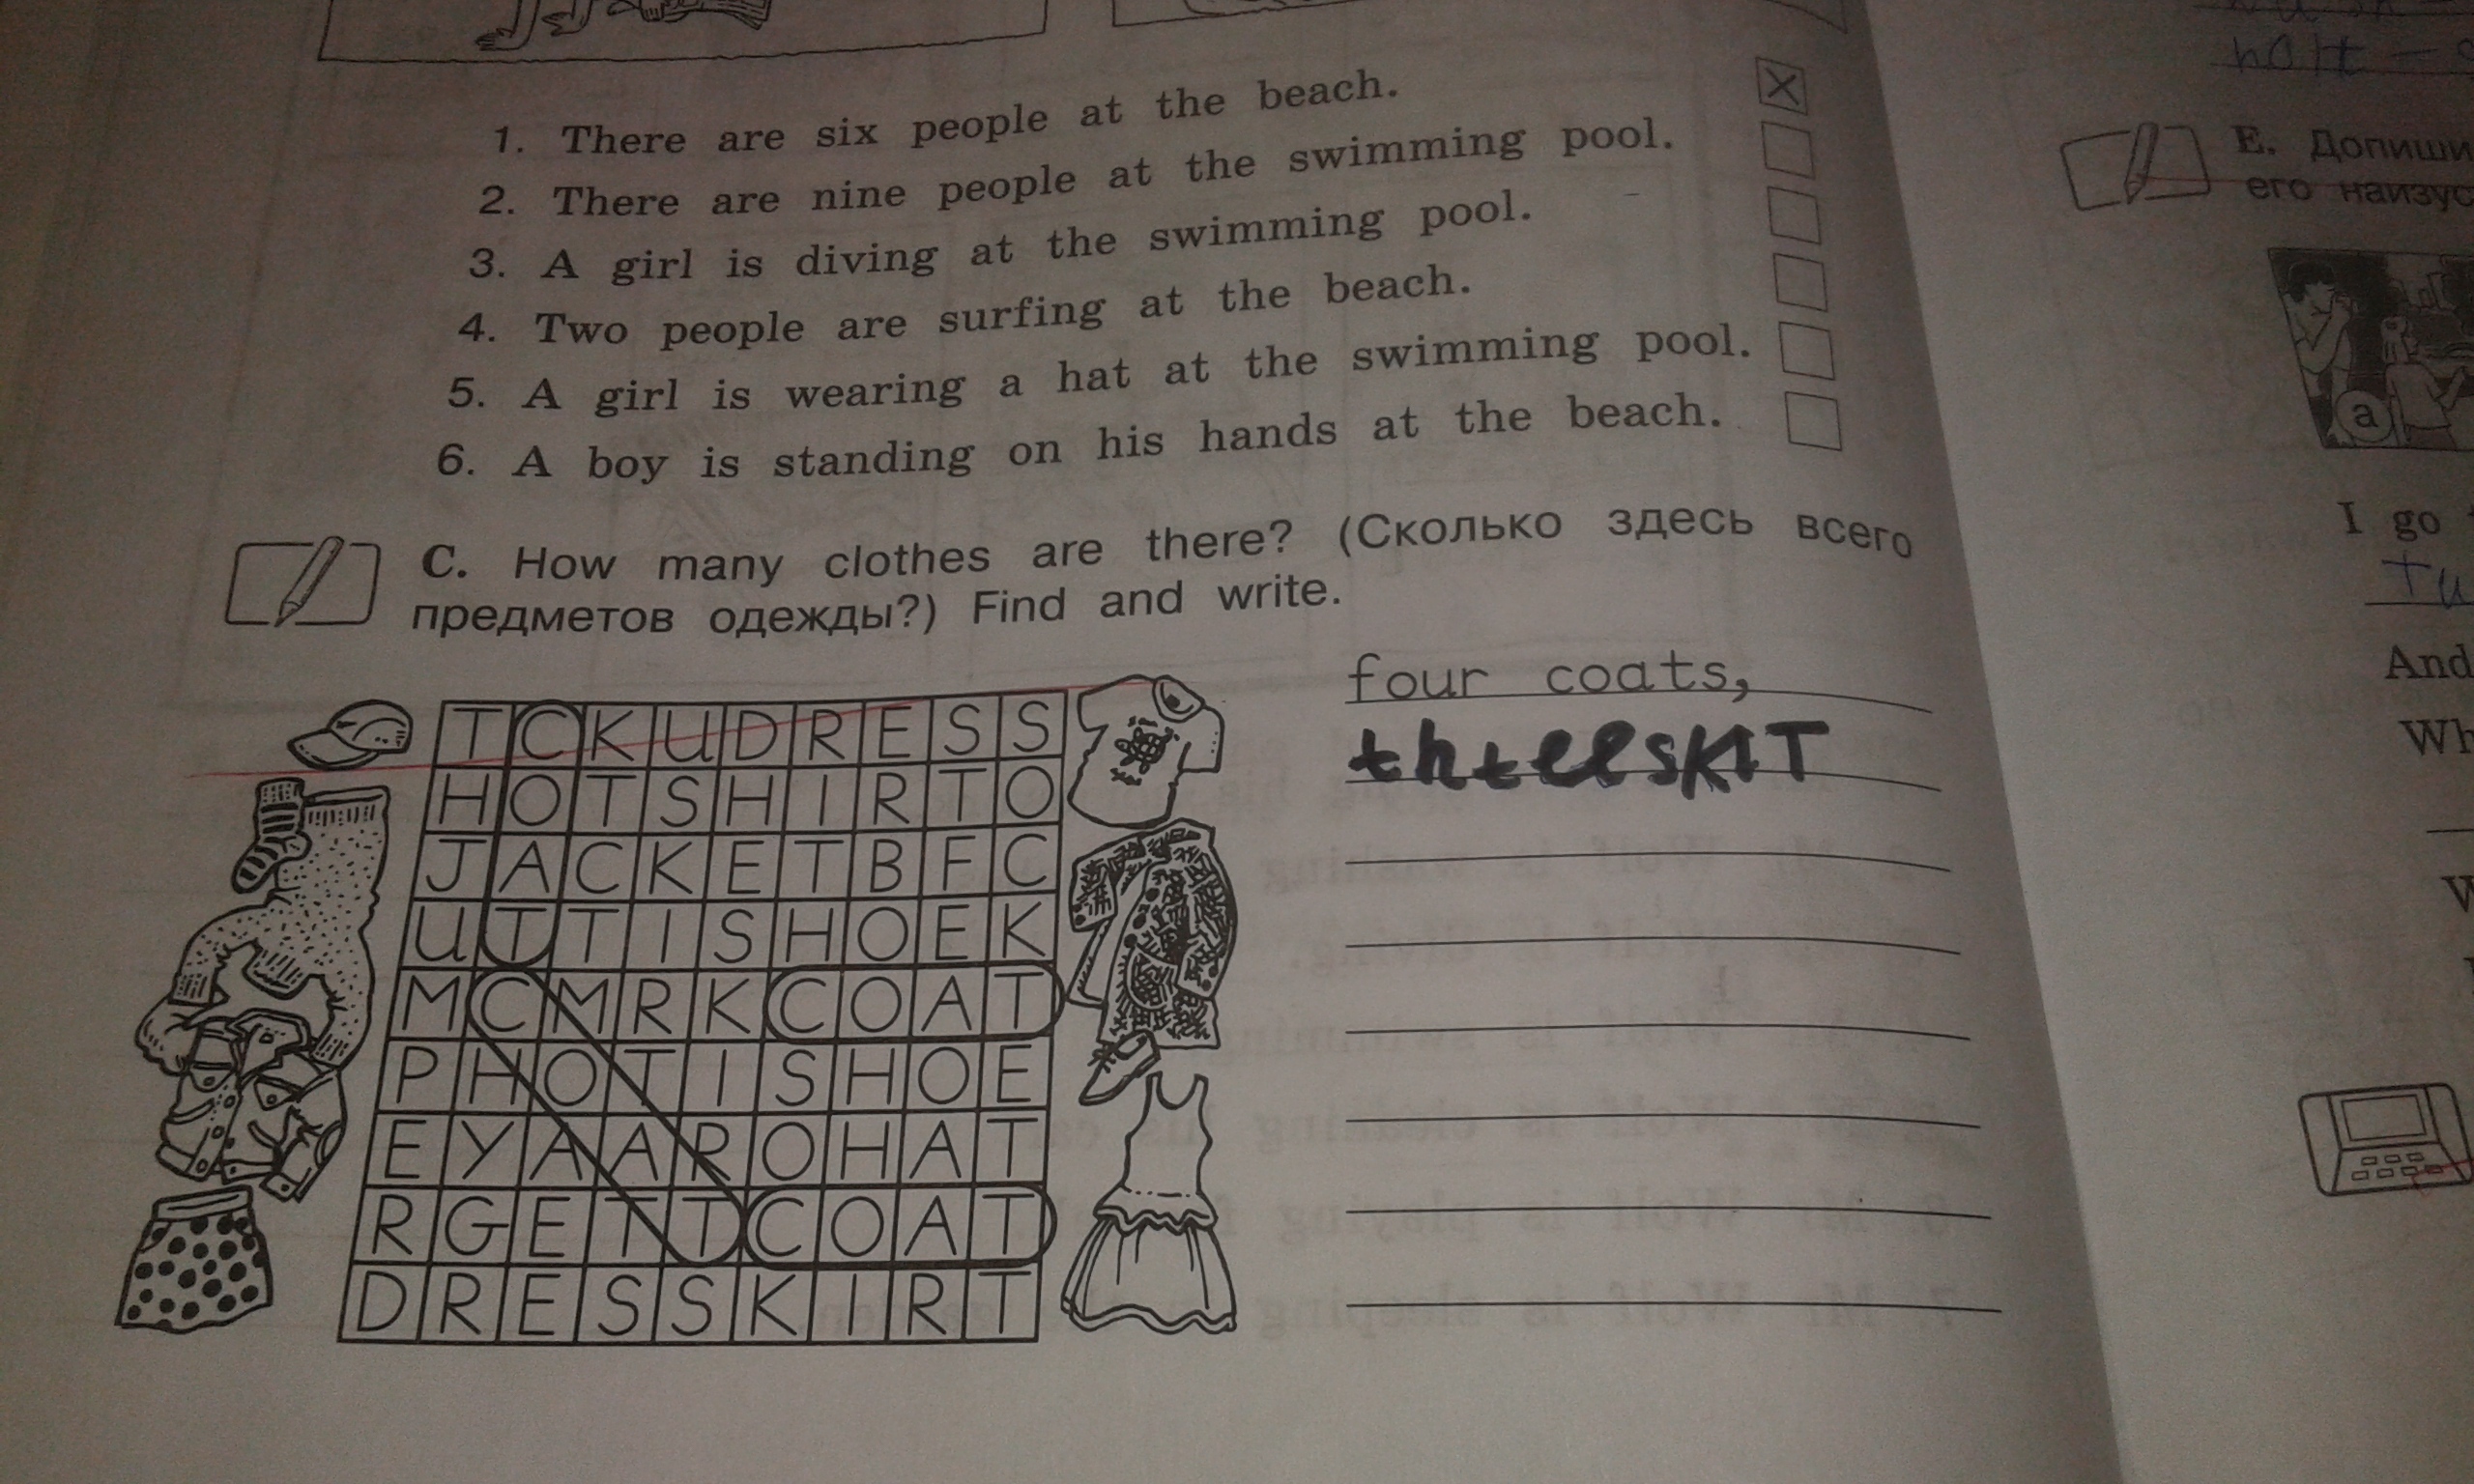 1. There are six people at the beach.
2. There are nine people at the swimming pool.
3. A girl is diving at the swimming pool.
4. Two people are surfing at the beach.
5. A girl is wearing a hat at the swimming pool.
6. A boy is standing on his hands at the beach.
C. How many clothes are there? (Сколько здесь всего
предметов одежды?) Find and write.
four coats,
TCKUDRESS
HOTSHIRTO
JACKETBFC
UTTISHOEK
MCMRKCOAT
PHOTISHOE
EYAAROHAT
RGETTCOAT
DRESSKIRT
E. Допиши
его
a
I go
And